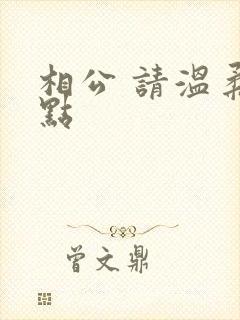 相公 請溫柔
點
曾文鼎